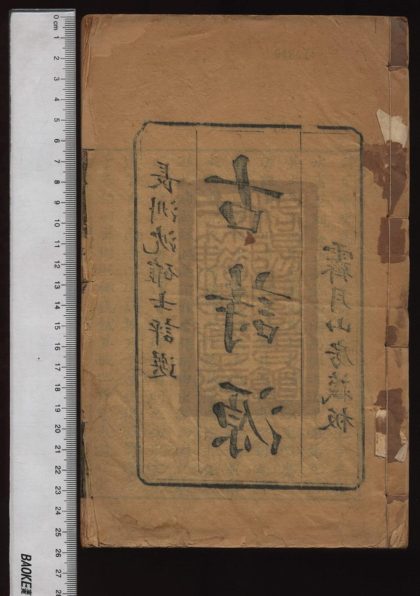 長洲沈確士評選
古詩源
月山房藏板
0 cm 1 2 3 4 5 6 7 8 9 10 11 12 13 14 15 16 17 18 19 20 21 22 23 24 25 26 27 28
BAOKE